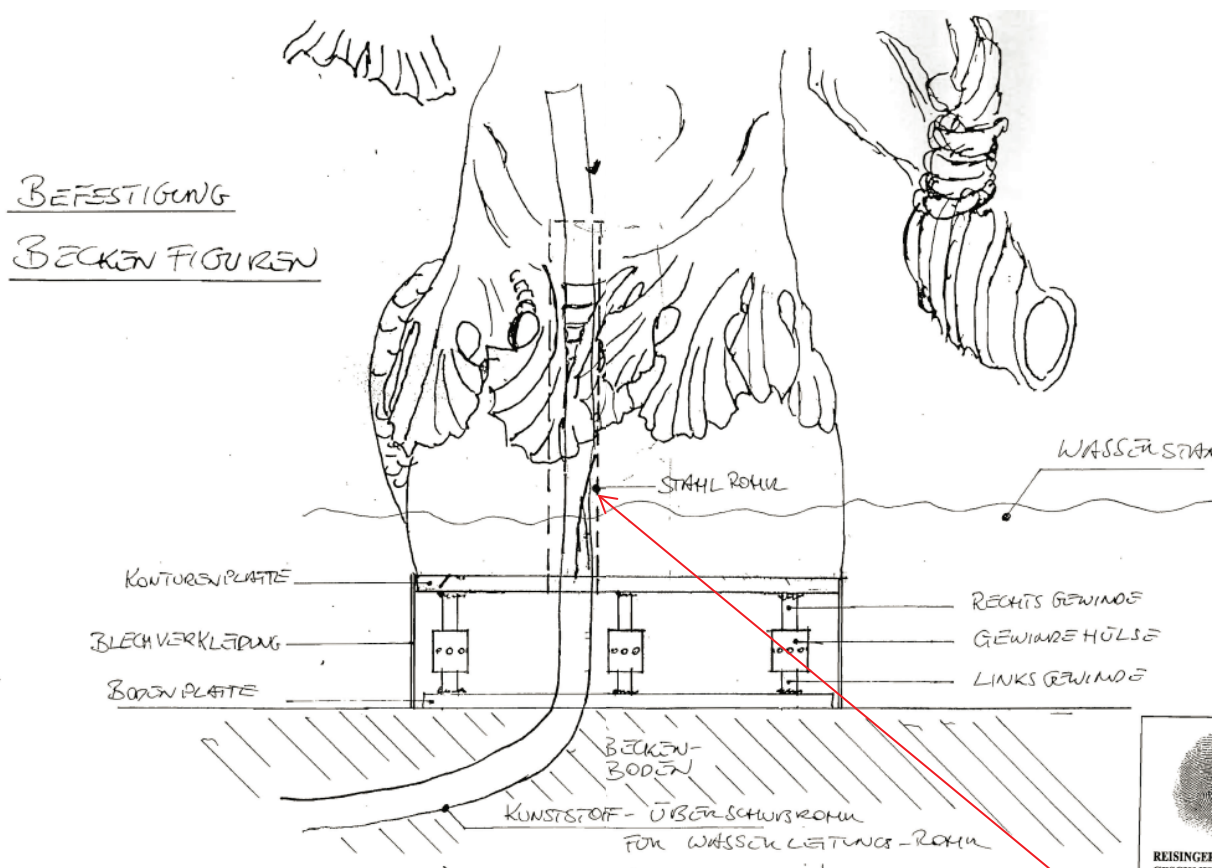 BEFESTIGUNG
BECKEN FIGUREN
WASSERSTA
STAHLROHR
KONTURENPLATTE
BLECHVERKLEIDUNG
BODENPLATTE
RECHTSGEWINDE
GEWINDEHÜLSE
LINKSGEWINDE
BECKEN-
BODEN
KUNSTSTOFF-ÜBERSCHUBROHR
FÜR WASSERLEITUNGS-ROHR
REISINGER